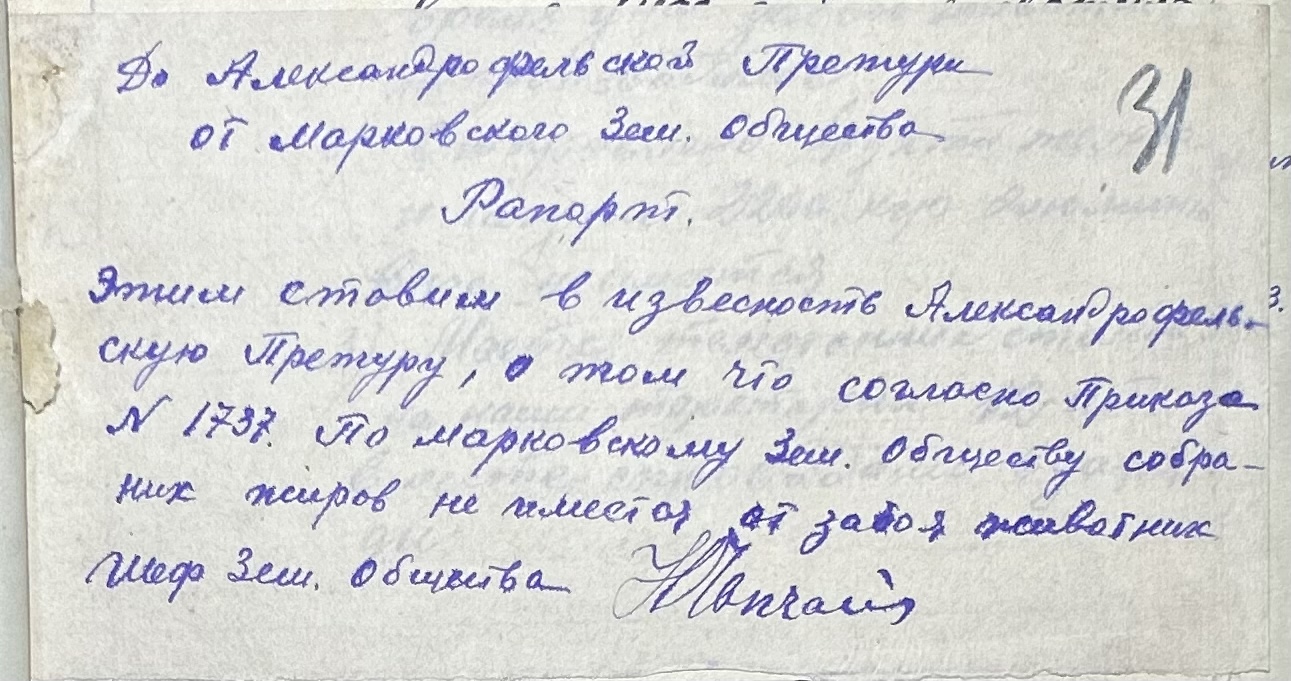 До Александрофельской Претури
31
от Марковского Зем. Общества
Рапорт.
Этим ставим в извесность Александрофель-
скую Претуру, о том что согласно Приказа
N 1737. По Марковскому Зем. Обществу собра-
них жиров не имеетса от забоя животних
Шеф Зем. Общества